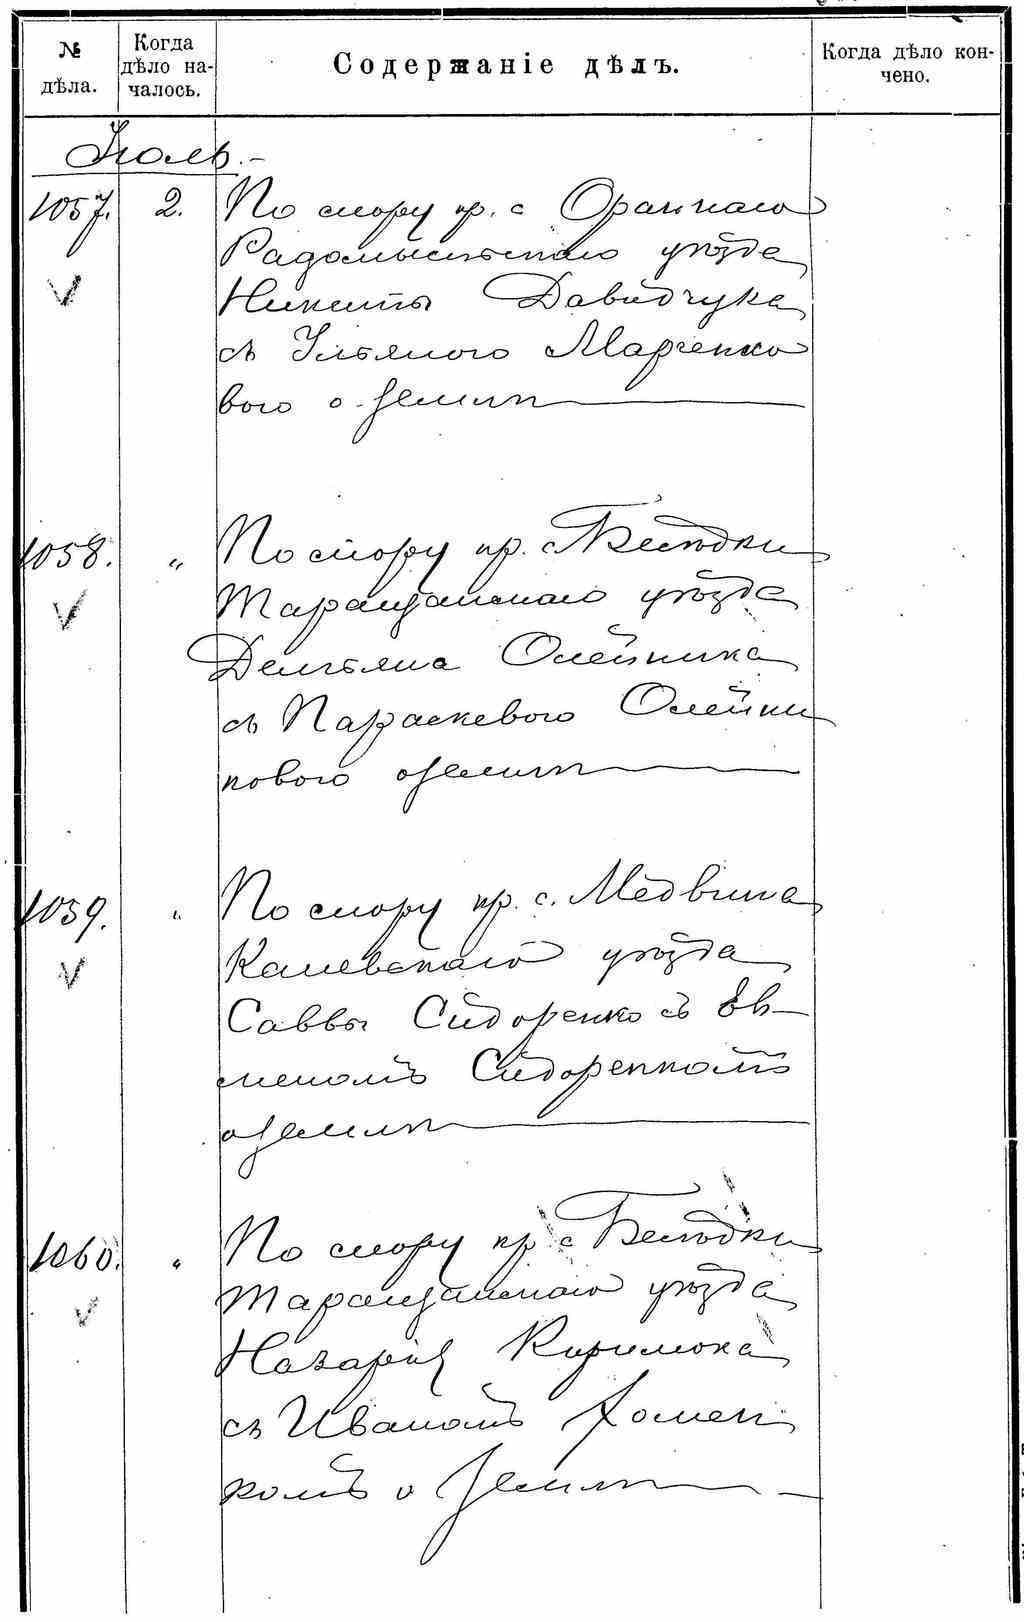 № дѣла.
Когда дѣло началось.
Содержаніе дѣлъ.
Когда дѣло кончено.
Іюль.
1057. 2. По спору кр. с Оранаго
Радомысльскаго уѣзда
Никиты Давидчука
съ Ульяною Марченко
вою о землѣ
1058. „ По спору кр. с. Бесѣдки
Таращанскаго уѣзда
Демьяна Олейника
съ Параскевою Олейни
ковою о землѣ
1059. „ По спору кр. с. Медвина
Каневскаго уѣзда
Саввы Сидоренко съ Ев-
меномъ Сидоренкомъ
о землѣ
1060. „ По спору кр с Бесѣдки
Таращанскаго уѣзда
Назарія
съ Иваномъ Хомен
комъ о землѣ